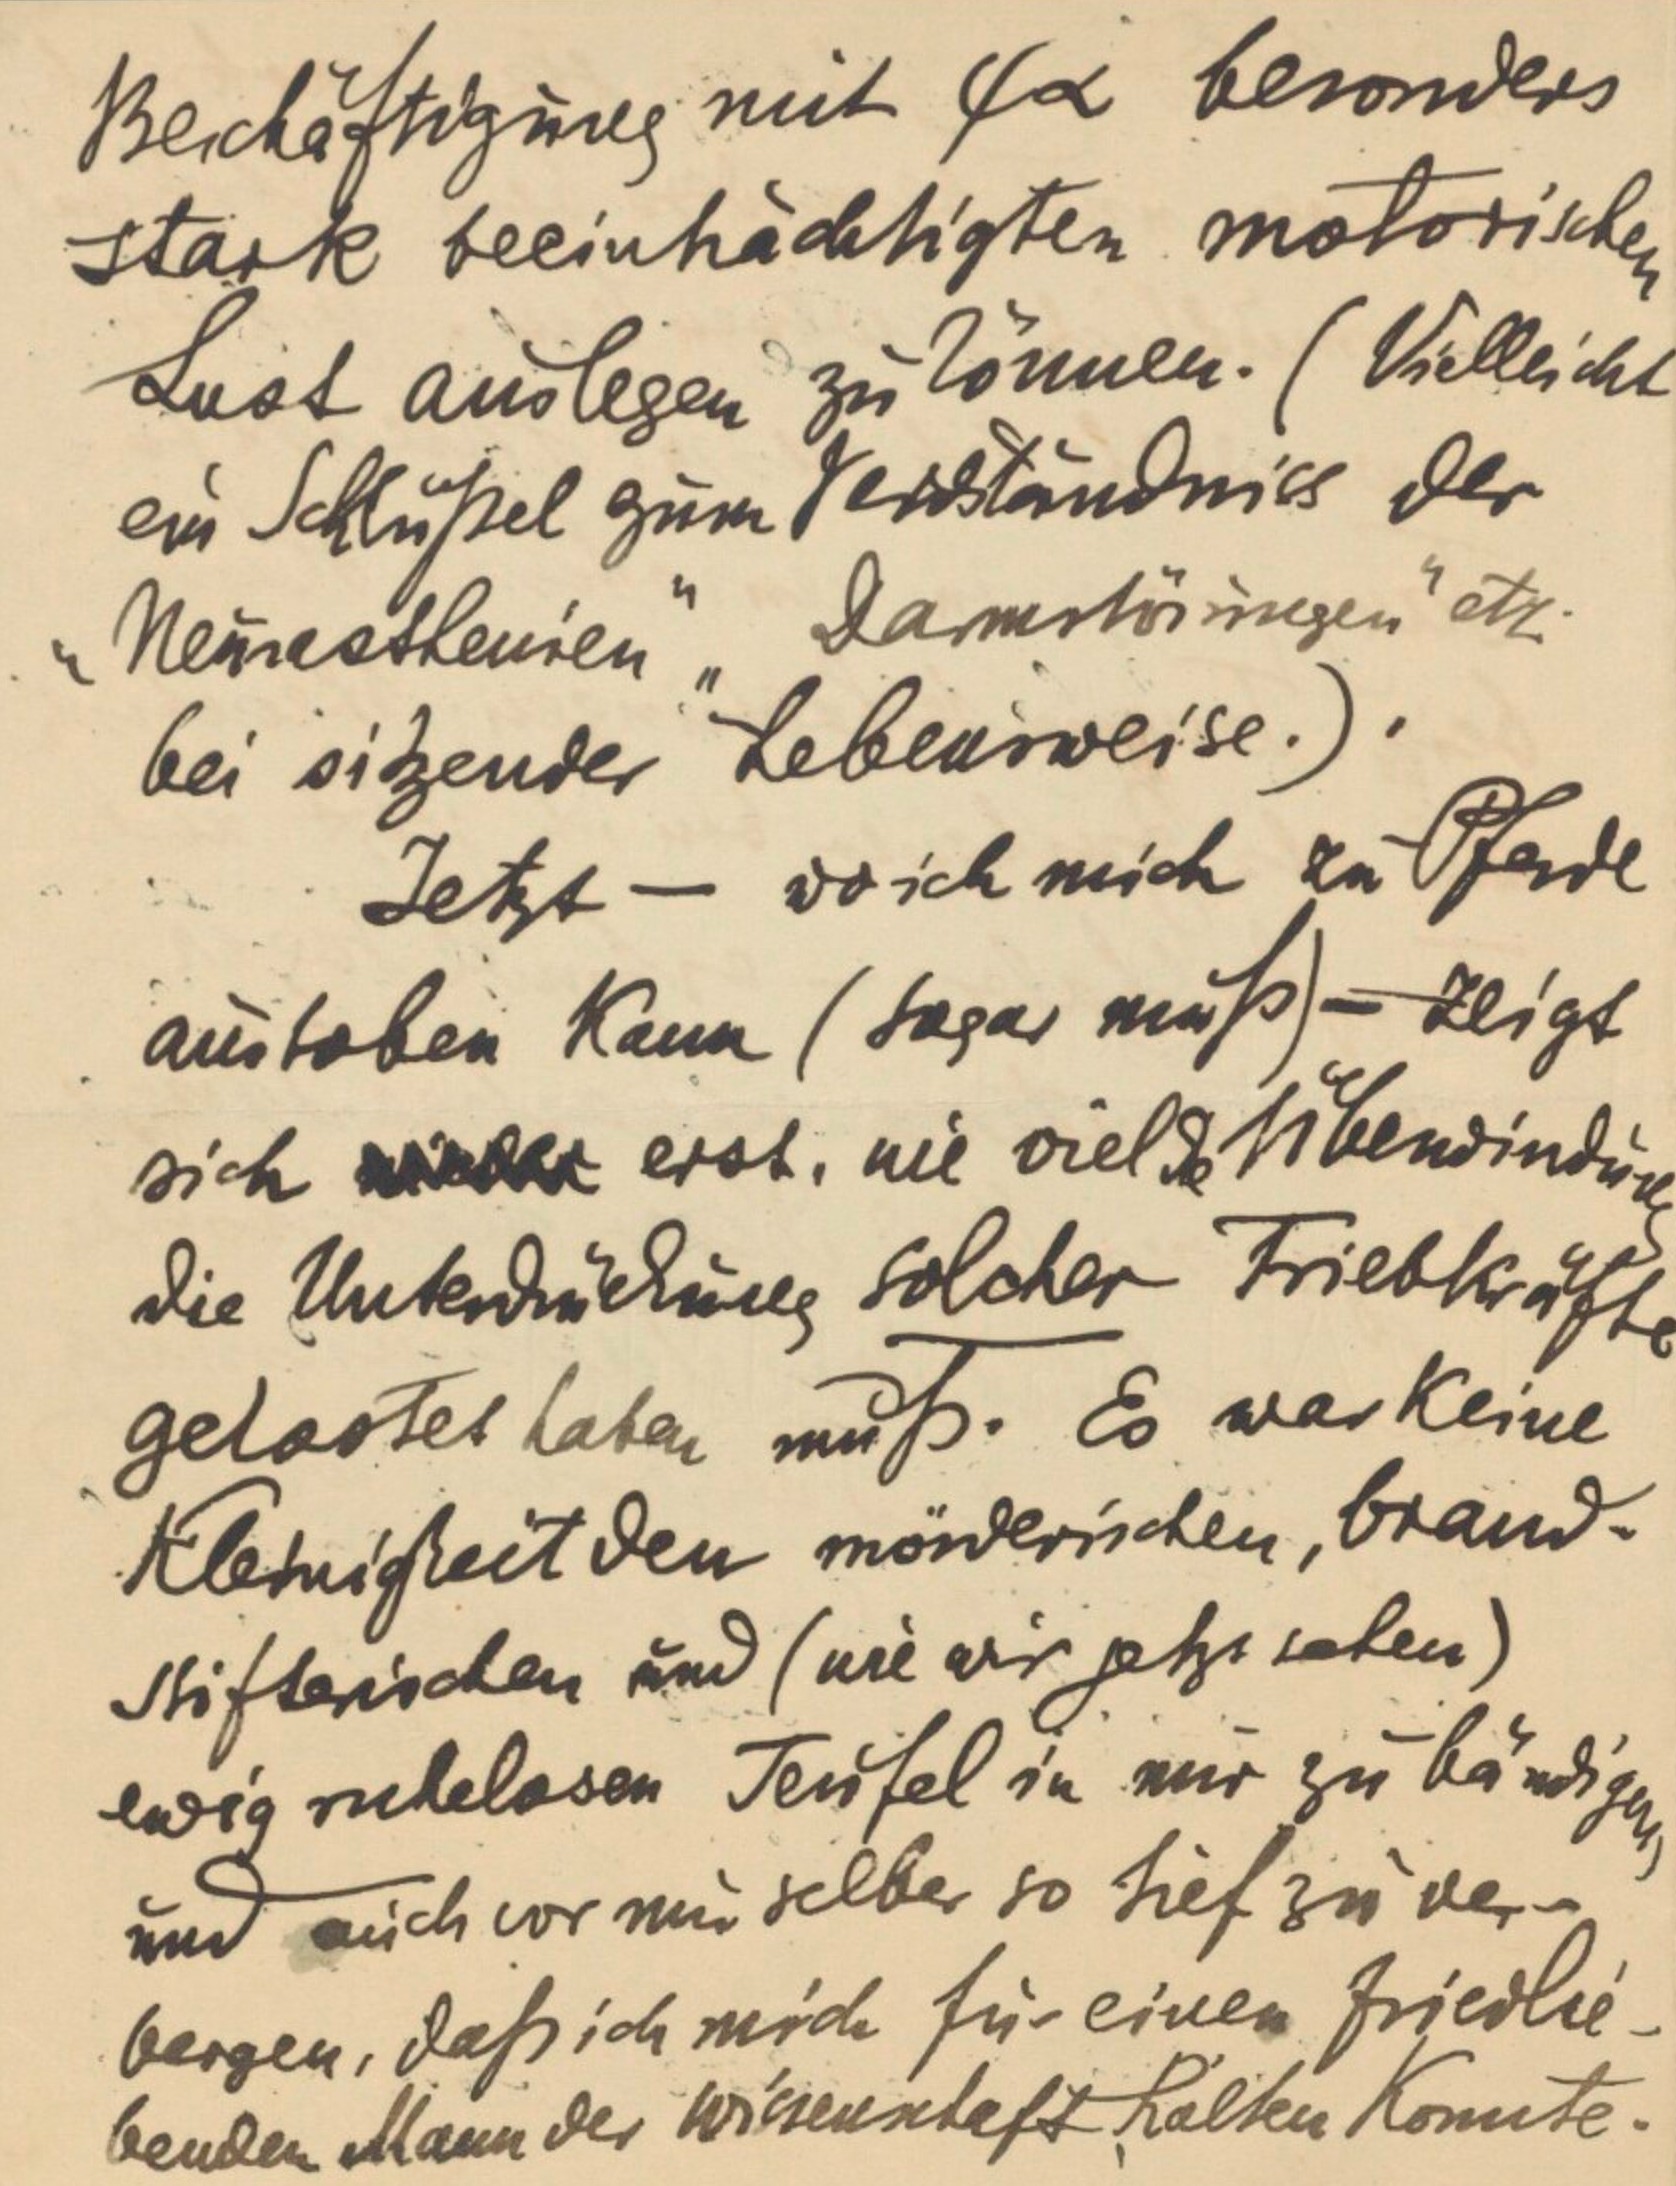 Beschäftigung mit ψα besonders
stark beeinträchtigten motorischen
Lust auslegen zu können. (Vielleicht
ein Schlüßel zum Verständniss der
„Neurasthenien" „Darmstörungen" etc.
bei sitzender Lebensweise.).
Jetzt — wo ich mich zu Pferde
austoben kann (sogar muß) — zeigt
sich erst, wie viel die Überwindung
die Unterdrückung solcher Triebkräfte
gekostet haben muß. Es war keine
Kleinigkeit den mörderischen, brand-
stifterischen und (wie wir jetzt sehen)
ewig ruhelosen Teufel in mir zu bändigen,
und auch vor mir selber so tief zu ver-
bergen, daß ich mich für einen friedlie-
benden Mann der Wissenschaft halten konnte.